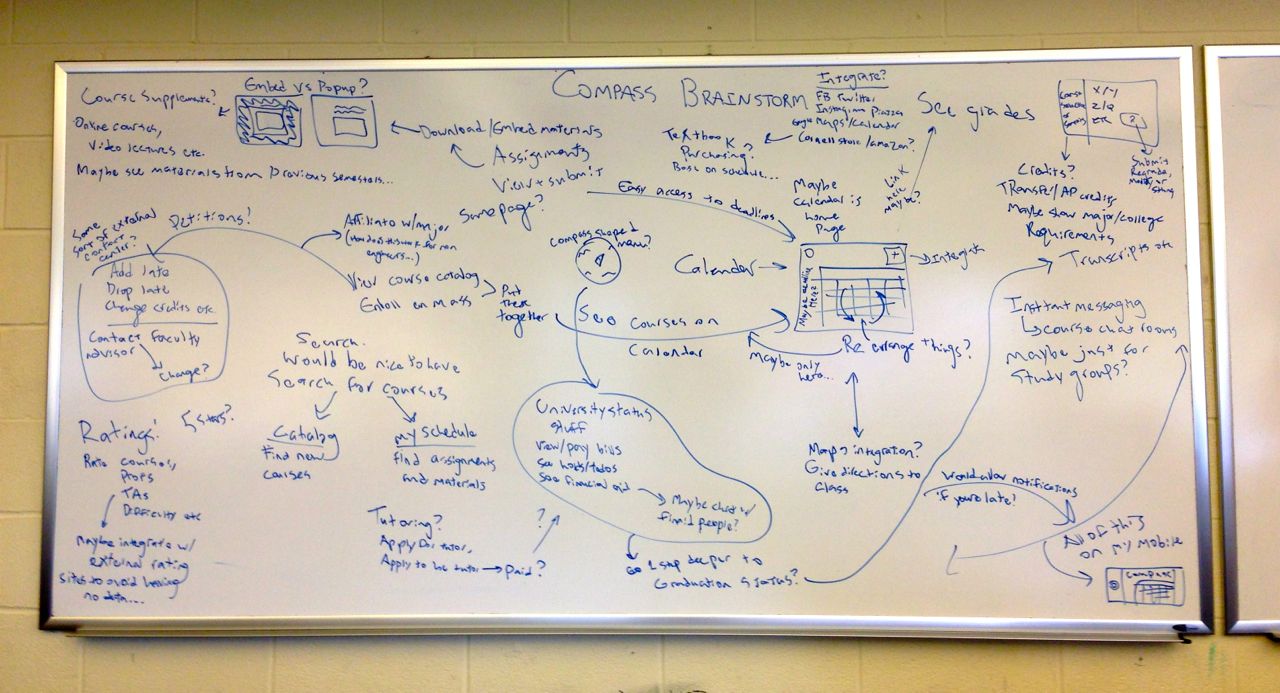 COMPASS BRAINSTORM
Course Supplements?
Online courses,
Video lectures etc.
Maybe see materials from previous semesters...
Embed vs Popup?
Download/Embed materials
Assignments
View + submit
Same page?
Easy access to deadlines
Textbook
Purchasing?
Base on schedule...
Integrate?
FB Twitter
Instagram Piazza
Google Maps/Calendar
Cornell store/amazon?
See grades
Link
here
maybe?
x/y
z/a
etc
?
Submit
Regrade,
Modify or
sthing
Credits?
Transfer/AP credits
Maybe show major/college
Requirements
Transcripts etc
Some
sort of external
contact
center?
Petitions?
Add late
Drop late
Change credits etc
Contact Faculty
advisor
Change?
Affiliate w/major
(How does this work for non
engineers...)
View course catalog
Enroll en Mass
Put
these
together
compass shaped
menu?
Maybe
calendar is
home
page
Calendar
+
Integrate
See courses on
Calendar
Maybe only
here...
Rearrange things?
Maps integration?
Give directions to
class
Instant messaging
course chat rooms
Maybe just for
study groups?
Search.
Would be nice to have
Search for courses
Catalog
Find new
courses
My schedule
find assignments
and materials
Ratings!
5 stars?
Rate courses,
profs
TAs
Difficulty etc
Maybe integrate w/
external rating
sites to avoid having
no data...
Tutoring?
Apply for tutor,
Apply to be tutor
paid?
?
University status
stuff
view/pay bills
see holds/todos
see financial aid
Maybe chat w/
finaid people?
Go 1 step deeper to
Graduation status?
Would allow notifications
if you're late?
All of this
on my mobile
Compass